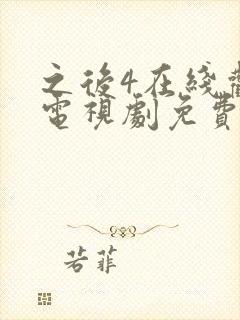 之後4在綫
電視劇免費
若菲